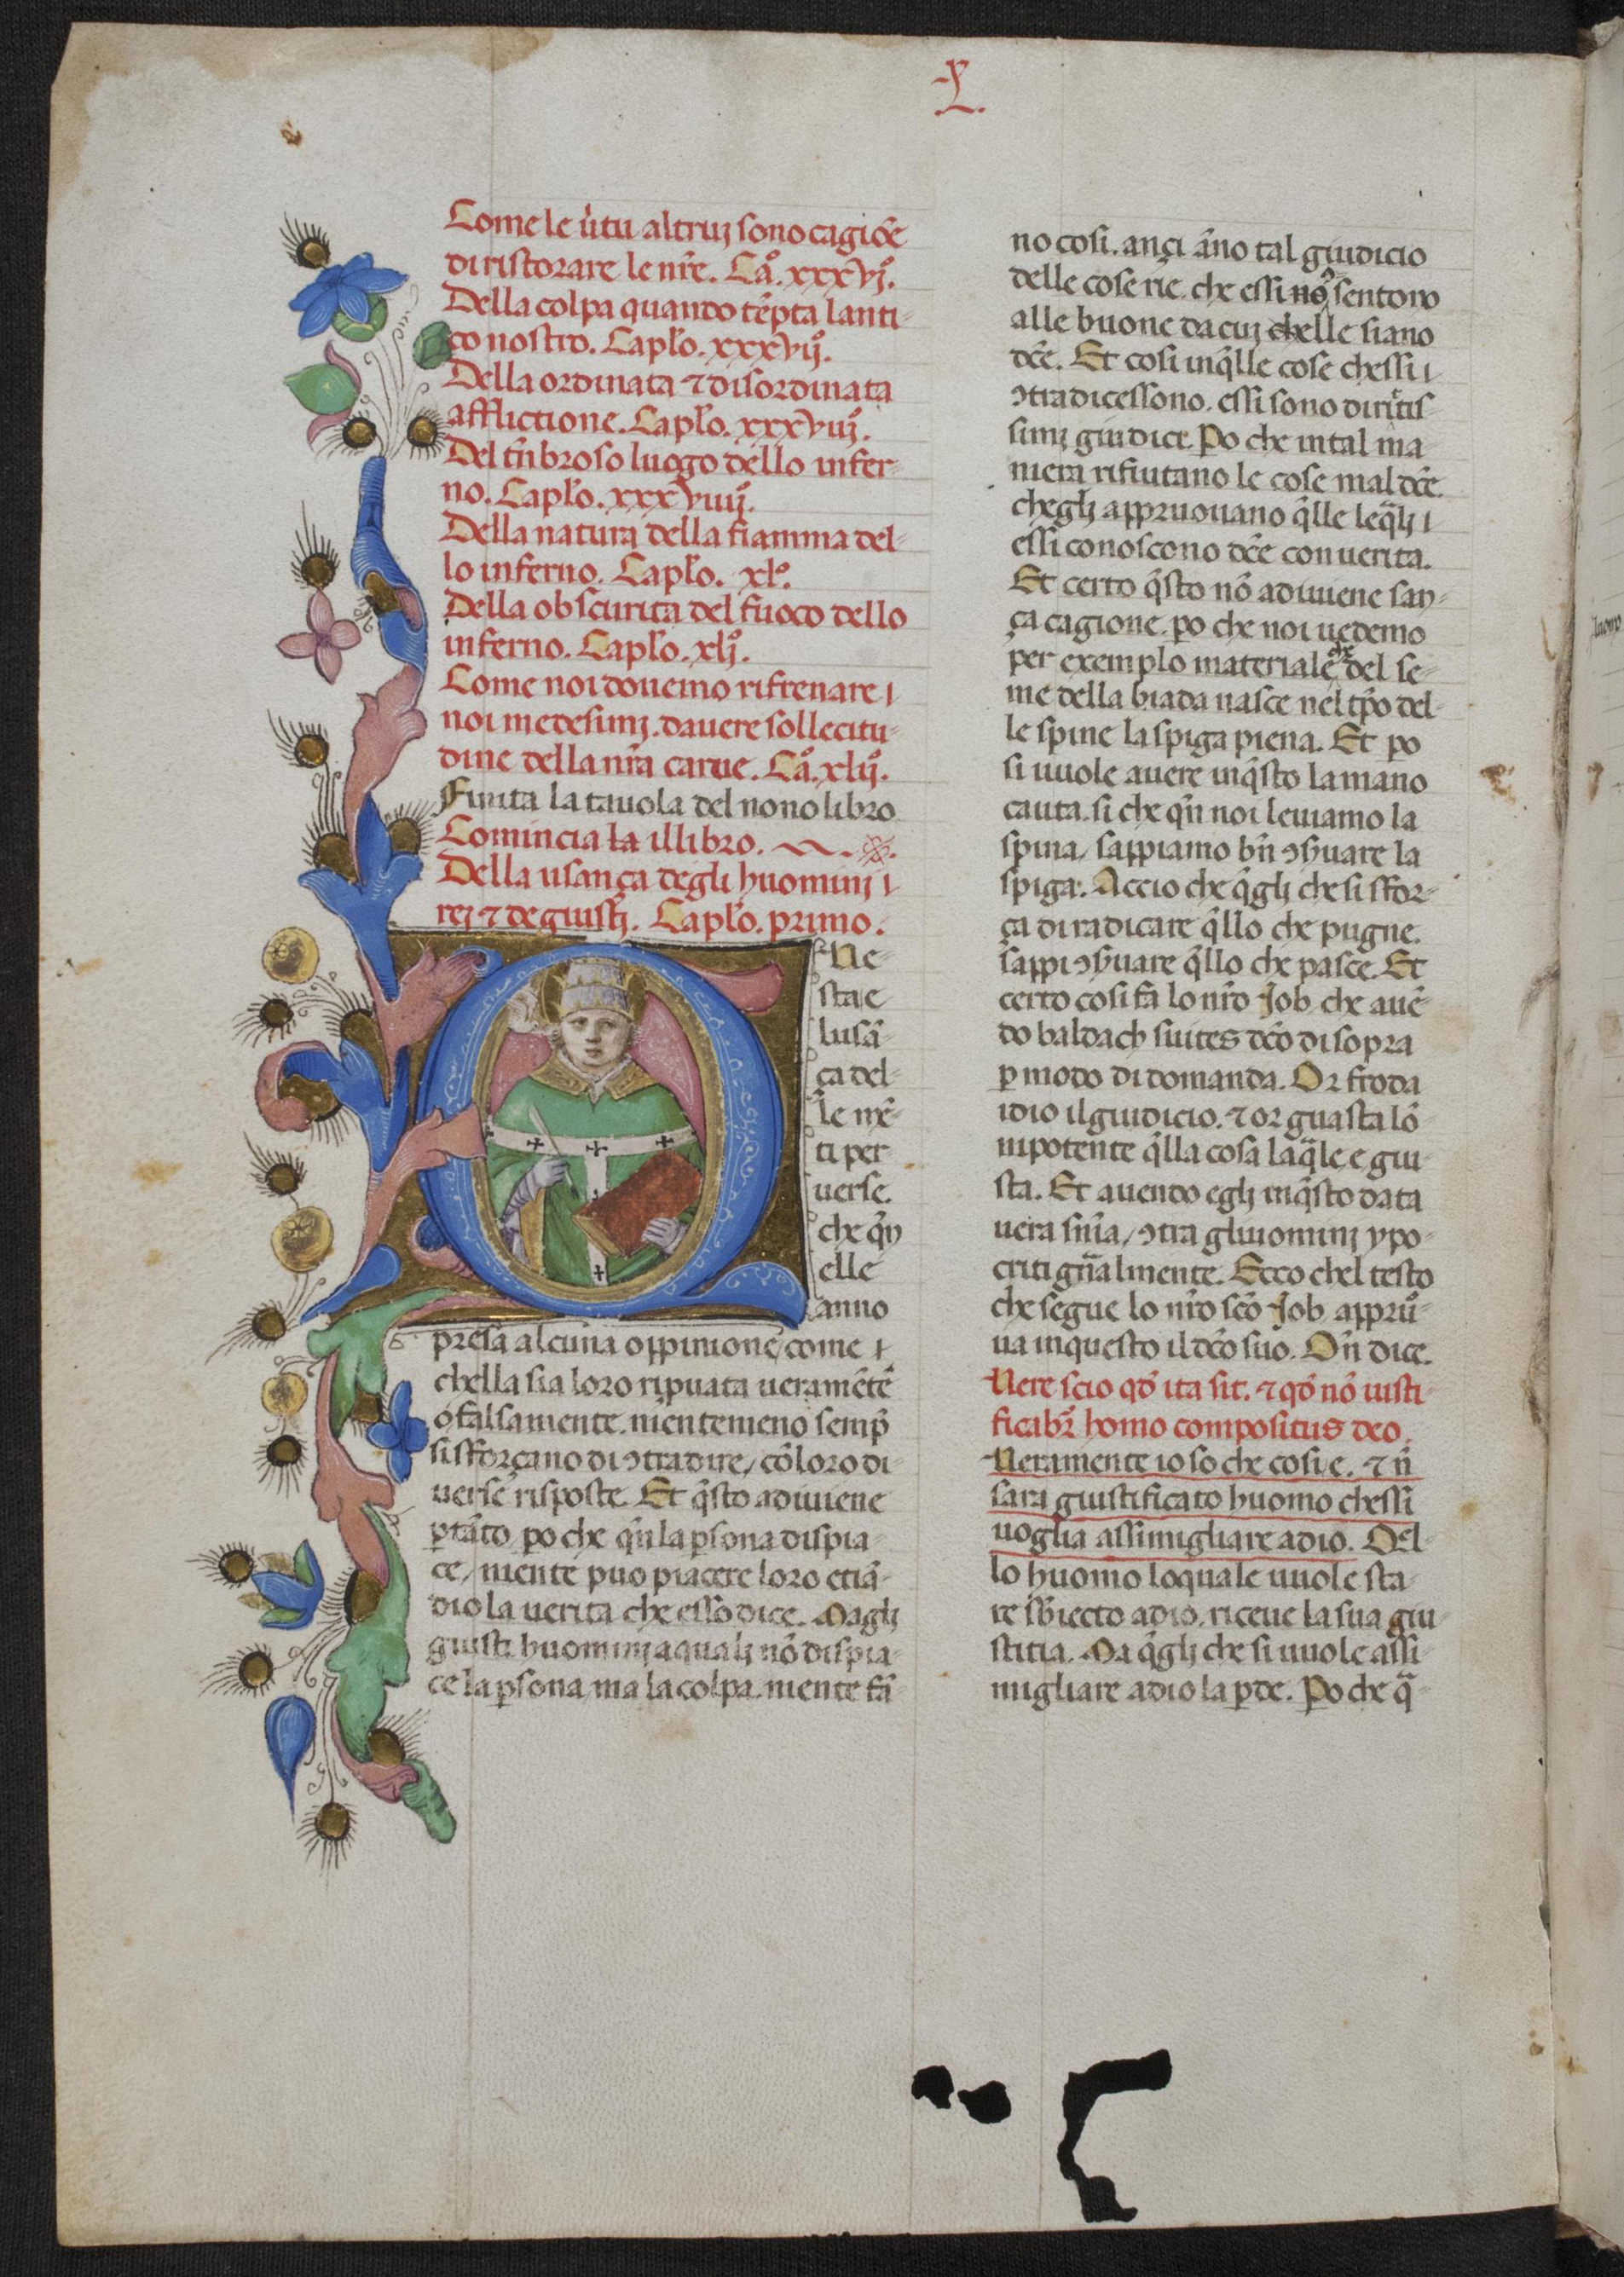 X
Come le ùtu altruj sono cagiõe
di ristorare le nr̃e. Ca.º xxxvj.º
Della colpa quando tẽpta lanti-
co nostro. Caplo. xxxvij.º
Della ordinata ⁊ disordinata
afflictione. Caplo. xxxviij.º
Del tñbroso luogo dello infer-
no. Caplo. xxxviiij.º
Della natura della fiamma del-
lo inferno. Caplo. xl.º
Della obscurita del fuoco dello
inferno. Caplo. xlj.º
Come noi douemo rifrenare
noi medesimj. dauere sollecitu-
dine della nr̃a carne. Ca.º xlij.º
Finita la tauola del nono libro
Comincia la illibro.
Della usança degli huominj
rej ⁊ de giustj. Caplo. primo.
Ne-
sta e
lusã-
ça del-
le mẽ-
ti per
uerse.
che qñ
elle
anno
presa alcuna oppinione, come
chella sia loro ripuata ueramẽte
o falsamente. nientemeno semp̃
si sforçano di ↄtradire, cõ loro di-
uerse risposte. Et q̃sto adiuiene
ꝑtãto. po che qñ la ꝑsona dispia-
ce, niente puo piacere loro etiã-
dio la uerita che esso dice. Magli
giusti huominj aqualj nõ dispia-
ce la ꝑsona, ma la colpa. niente fã-
no cosi. anci ãno tal giudicio
delle cose rie. che essi no, sentono
alle buone da cuj chelle siano
dc̃e. Et cosi inq̃lle cose chessi
ↄtradicessono. essi sono diritis-
simj giudici. Po che in tal ma-
niera rifiutano le cose mal dc̃e.
chegli appruouano q̃lle leq̃li
essi conoscono dc̃e con uerita.
Et certo q̃sto nõ adiuiene san-
ça cagione. po che noi uedemo
per exemplo materiale che del se-
me della biada nasce nel tp̃o del-
le spine la spiga piena. Et po
si uuole auere inq̃sto la mano
cauta. si che qñ noi leuiamo la
spina, sappiamo bñ ↄseruare la
spiga. Accio che q̃gli che si sfor-
ça di radicare q̃llo che pugne.
sappi ↄseruare q̃llo che pasce. Et
certo cosi fa lo nr̃o Job. che auẽ-
do baldach suites dc̃o di sopra
ꝑ modo di domanda. Or froda
idio il giudicio. ⁊ or guasta lõ-
nipotente q̃lla cosa laq̃le e giu-
sta. Et auendo egli inq̃sto data
uera snĩa, ↄtra gliuominj ypo-
criti gñalmente. Ecco chel testo
che segue lo nr̃o sc̃o Job appruo-
ua inquesto il dc̃o suo. Oñ dice.
Uere scio qđ ita sit. ⁊ qđ nõ iusti-
ficabr̃ homo compositus deo.
Ueramente io so che cosi e. ⁊ ñ
sara giustificato huomo chessi
uoglia assimigliare adio. Quel-
lo huomo loquale uuole sta-
re sb̃iecto adio. riceue la sua giu-
stitia. Ma q̃gli che si uuole assi-
migliare adio la ꝑde. Po che q̃-